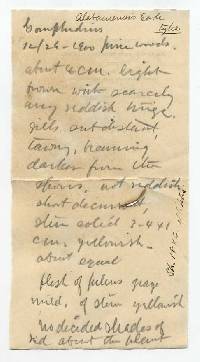 Alabamensis Earle
Type
Gomphidius
12/26-1900 pine woods.
about 6 cm. light
brown with scarcely
any reddish tinge.
gills subdistant,
tawny, becoming
darker from the
spores, not reddish
short decurrent,
stem solid 3-4 x 1
cm. yellowish
about equal
flesh of pileus gray
mild, of stem yellowish
no decided shades of
red about the plant